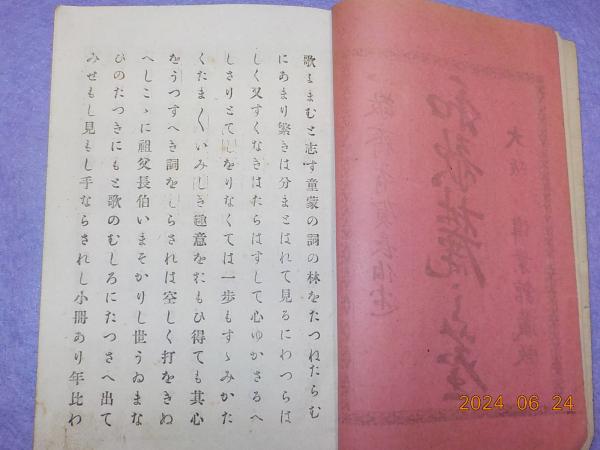 歌よまむと志す童蒙の詞の林をたつねたらむ
にあまり繁きは分まとはれて見るにわつらは
しく又すくなきはたらはすして心ゆかさるへ
しさりとてしをりなくては一歩もすゝみかた
くたま〱いみしき趣意をおもひ得ても其心
をうつすへき詞をしらされは空しく打をきぬ
へしこゝに祖父長伯いまそかりし世うゐまな
ひのたつきにもと歌のむしろにたつさへ出て
みせもし見もし手ならされし小冊あり年比わ
2024 06 24